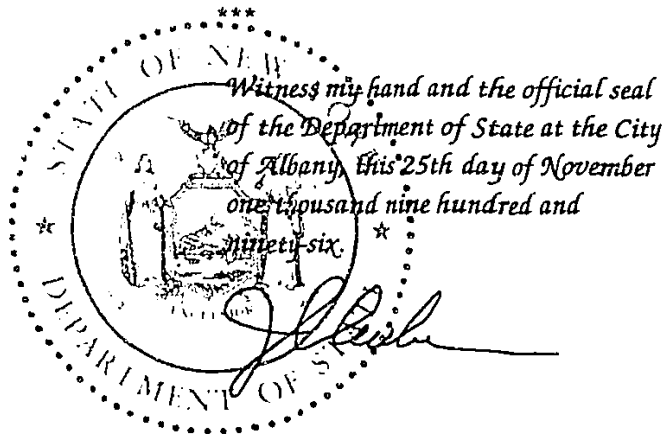 ***
STATE OF NEW
Witness my hand and the official seal
of the Department of State at the City
of Albany, this 25th day of November
one thousand nine hundred and
ninety-six.
DEPARTMENT OF